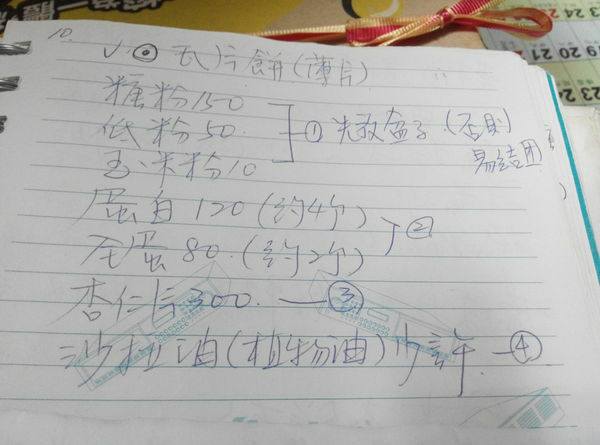 10.
✓ ⊙ 瓦片餅(薄片)
糖粉150
低粉50 ① 先放盒子(否則
易結团
玉米粉10
蛋白120(約4个)
全蛋80.(約2个) ②
杏仁片300. —③
沙拉油(植物油)少許. —④
23 24 25
19 20 21
23 24